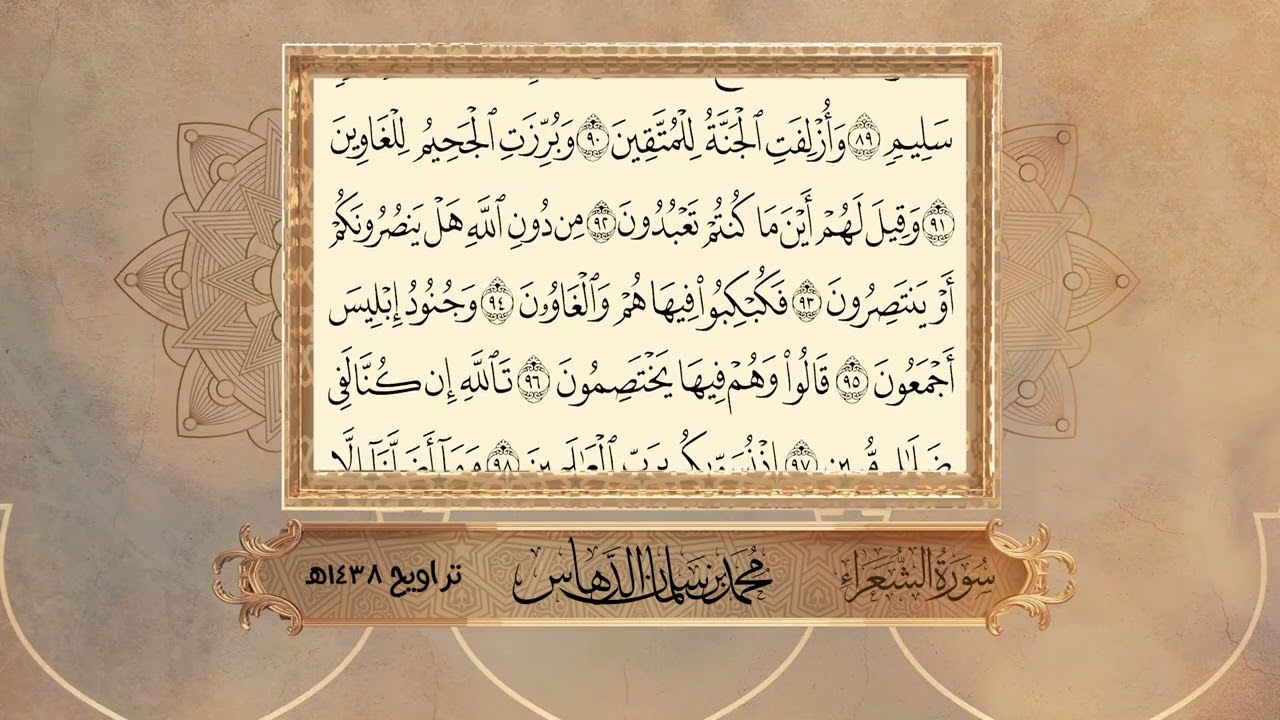 سَلِيمٍ ٨٩ وَأُزْلِفَتِ ٱلْجَنَّةُ لِلْمُتَّقِينَ ٩٠ وَبُرِّزَتِ ٱلْجَحِيمُ لِلْغَاوِينَ
٩١ وَقِيلَ لَهُمْ أَيْنَ مَا كُنتُمْ تَعْبُدُونَ ٩٢ مِن دُونِ ٱللَّهِ هَلْ يَنصُرُونَكُمْ
أَوْ يَنتَصِرُونَ ٩٣ فَكُبْكِبُوا۟ فِيهَا هُمْ وَٱلْغَاوُۥنَ ٩٤ وَجُنُودُ إِبْلِيسَ
أَجْمَعُونَ ٩٥ قَالُوا۟ وَهُمْ فِيهَا يَخْتَصِمُونَ ٩٦ تَٱللَّهِ إِن كُنَّا لَفِى
ضَلَٰلٍ مُّبِينٍ ٩٧ إِذْ نُسَوِّيكُم بِرَبِّ ٱلْعَٰلَمِينَ ٩٨ وَمَآ أَضَلَّنَآ إِلَّا
سُورَةُ الشُّعَرَاءِ محمد بن سلمان الدهاس تراويح ١٤٣٨هـ